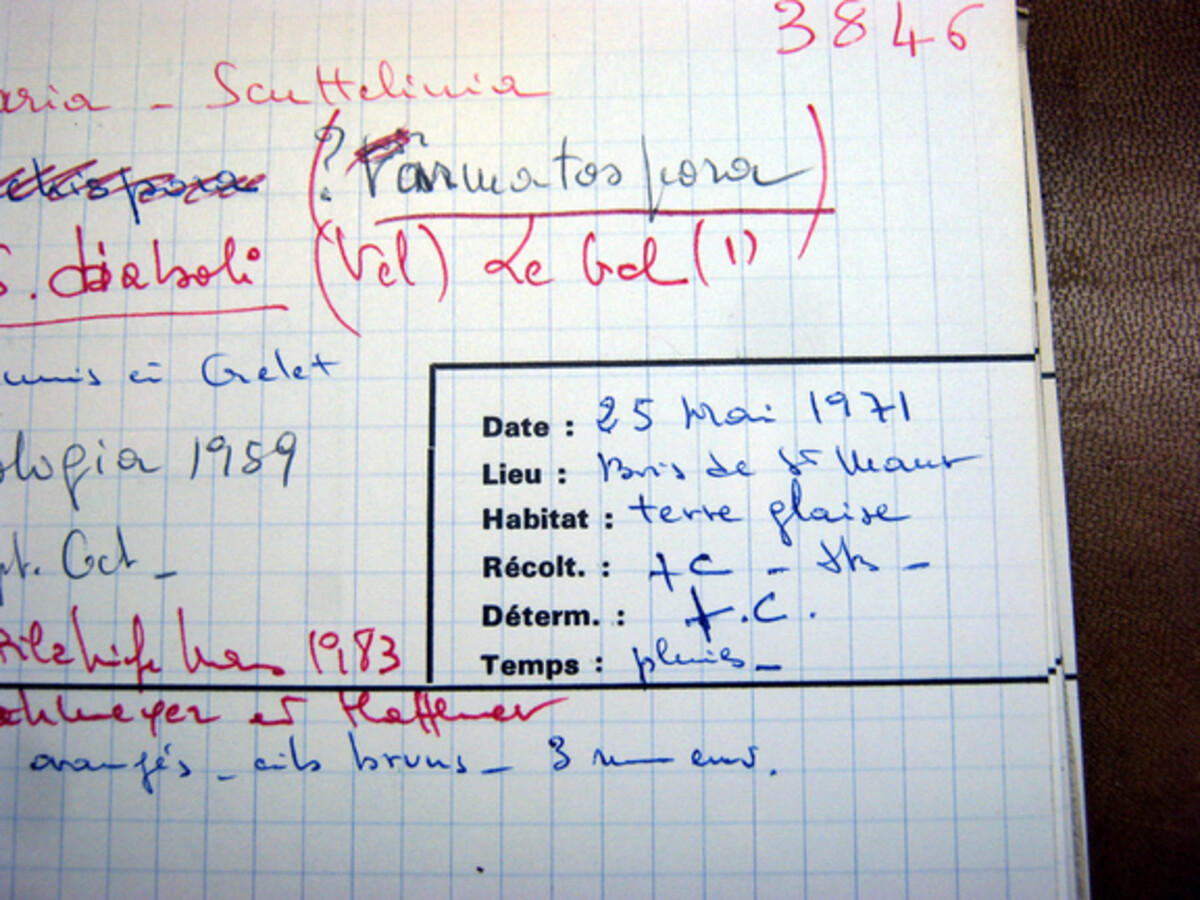 3846
aria - Scuttelinia
(? armatospora)
S. diaboli (Vel) Le Gal (1)
unis à Grelet
ologia 1959
Date : 25 Mai 1971
Lieu : Bois de St Maur
Habitat : terre glaise
pt. Oct -
Récolt. : +C - -
Déterm. : +.C.
1983
Temps : pluies -
et Haffner
orangés - cils bruns - 3 mm env.